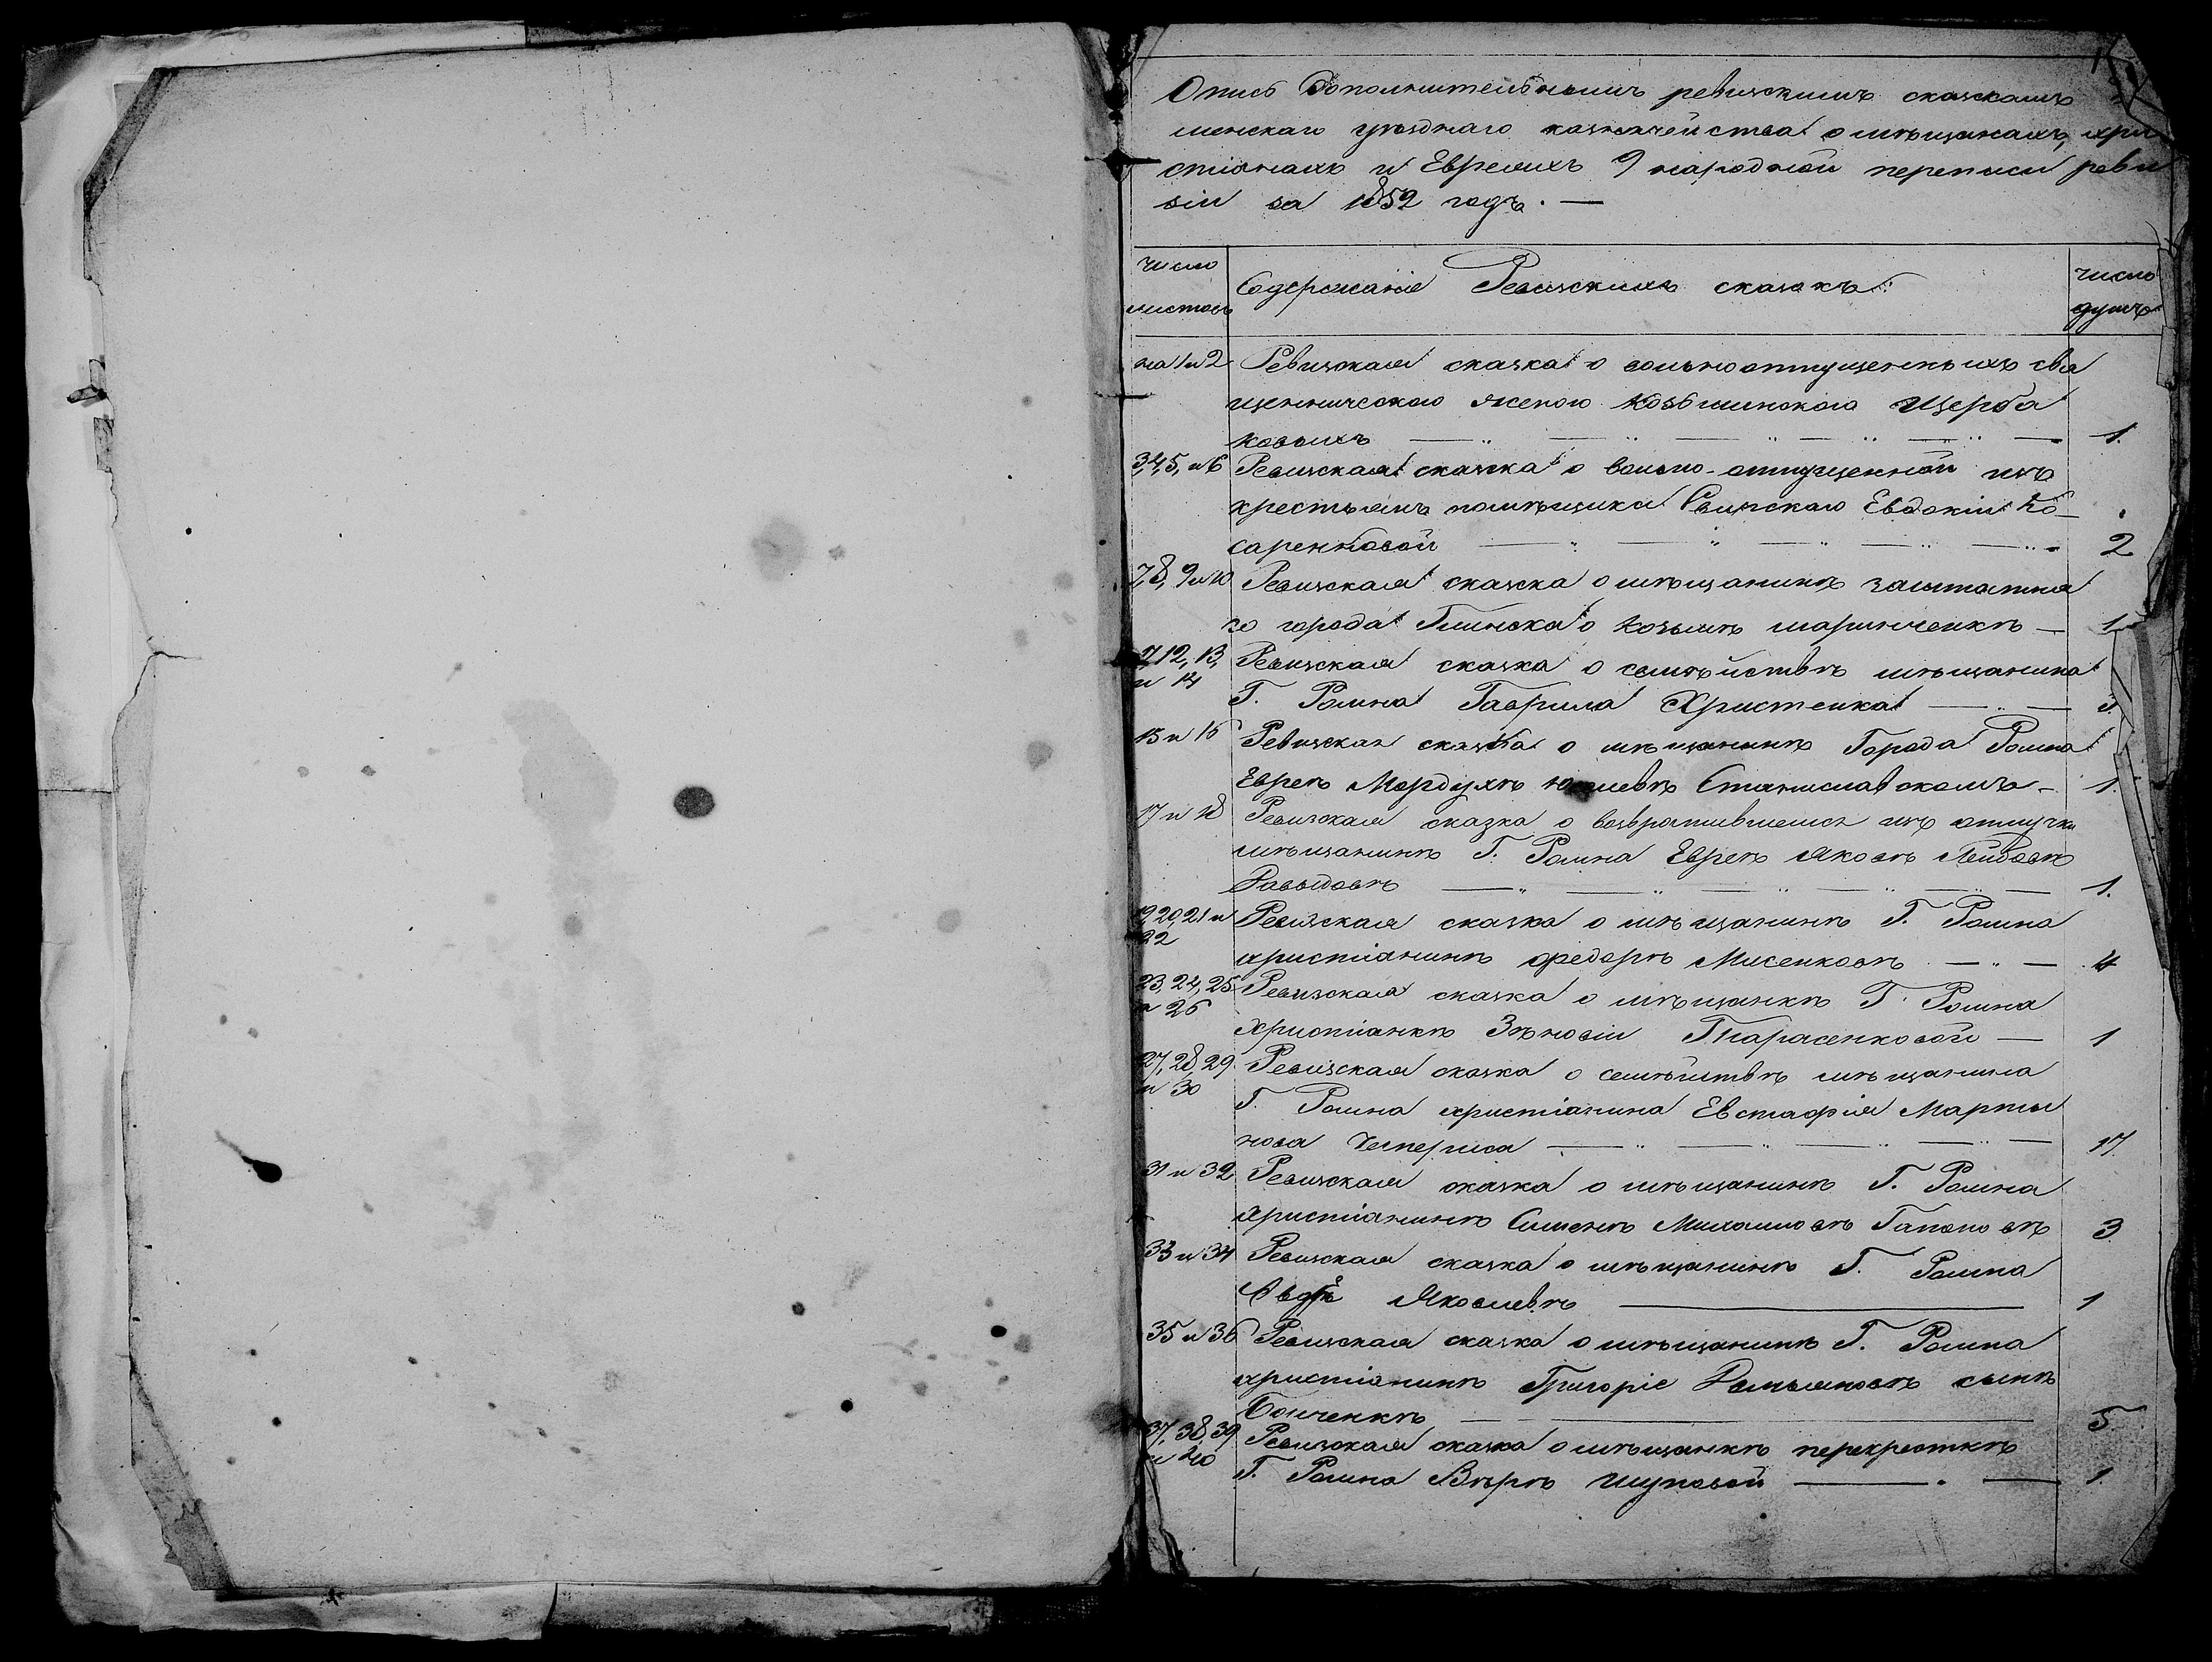 Опись дополнительнымъ ревизскимъ сказкамъ
менскаго уѣзднаго казначейства о мѣщанахъ, хри
стіанахъ и Евреяхъ 9 народной переписи реви
зіи за 1852 годъ. —
число листовъ
Содержаніе Ревизскихъ сказокъ:
число душъ
на 1 и 2 Ревизская сказка о вольноотпущенныхъ свя
щенническою женою Щерба
ковыхъ 1.
3,4,5, и 6 Ревизская сказка о вольно-отпущенной изъ
крестьянъ помѣщика Свирскаго Евдокіи Ко
саренковой 2
7,8,9 и 10 Ревизская сказка о мѣщанинѣ заштатна
го города Глинска о Козьмѣ Маринченкѣ — 1
12, 13, и 14 Ревизская сказка о семѣйствѣ мѣщанина
Г. Ромна Гаврила Христенка
15 и 16 Ревизская сказка о мѣщанинѣ Города Ромна
Евреѣ Мордухѣ Станиславскомъ — 1.
17 и 18 Ревизская сказка о возвратившемся изъ отлучки
мѣщанинѣ Г. Ромна Евреѣ Яковѣ Лейбовѣ
Давыдовѣ 1.
19,20,21 и 22 Ревизская сказка о мѣщанинѣ Г. Ромна
христіанинѣ Федорѣ Мисенковѣ 4
23,24,25 и 26 Ревизская сказка о мѣщанкѣ Г. Ромна
христіанкѣ Зѣновіи Тарасенковой — 1
27,28,29 и 30 Ревизская сказка о семѣйствѣ мѣщанина
Г. Ромна христіанина Евстафія Марты
нова Чепериса 17.
31 и 32 Ревизская сказка о мѣщанинѣ Г. Ромна
христіанинѣ Сименѣ Михаиловѣ Гапоновѣ 3
33 и 34 Ревизская сказка о мѣщанинѣ Г. Ромна
Яковлевѣ 1
35 и 36 Ревизская сказка о мѣщанинѣ Г. Ромна
христіанинѣ Григоріе Демьяновѣ сынѣ
5
37,38,39 и 40 Ревизская сказка о мѣщанкѣ перекресткѣ
Г. Ромна Вѣрѣ Шуповой 1.